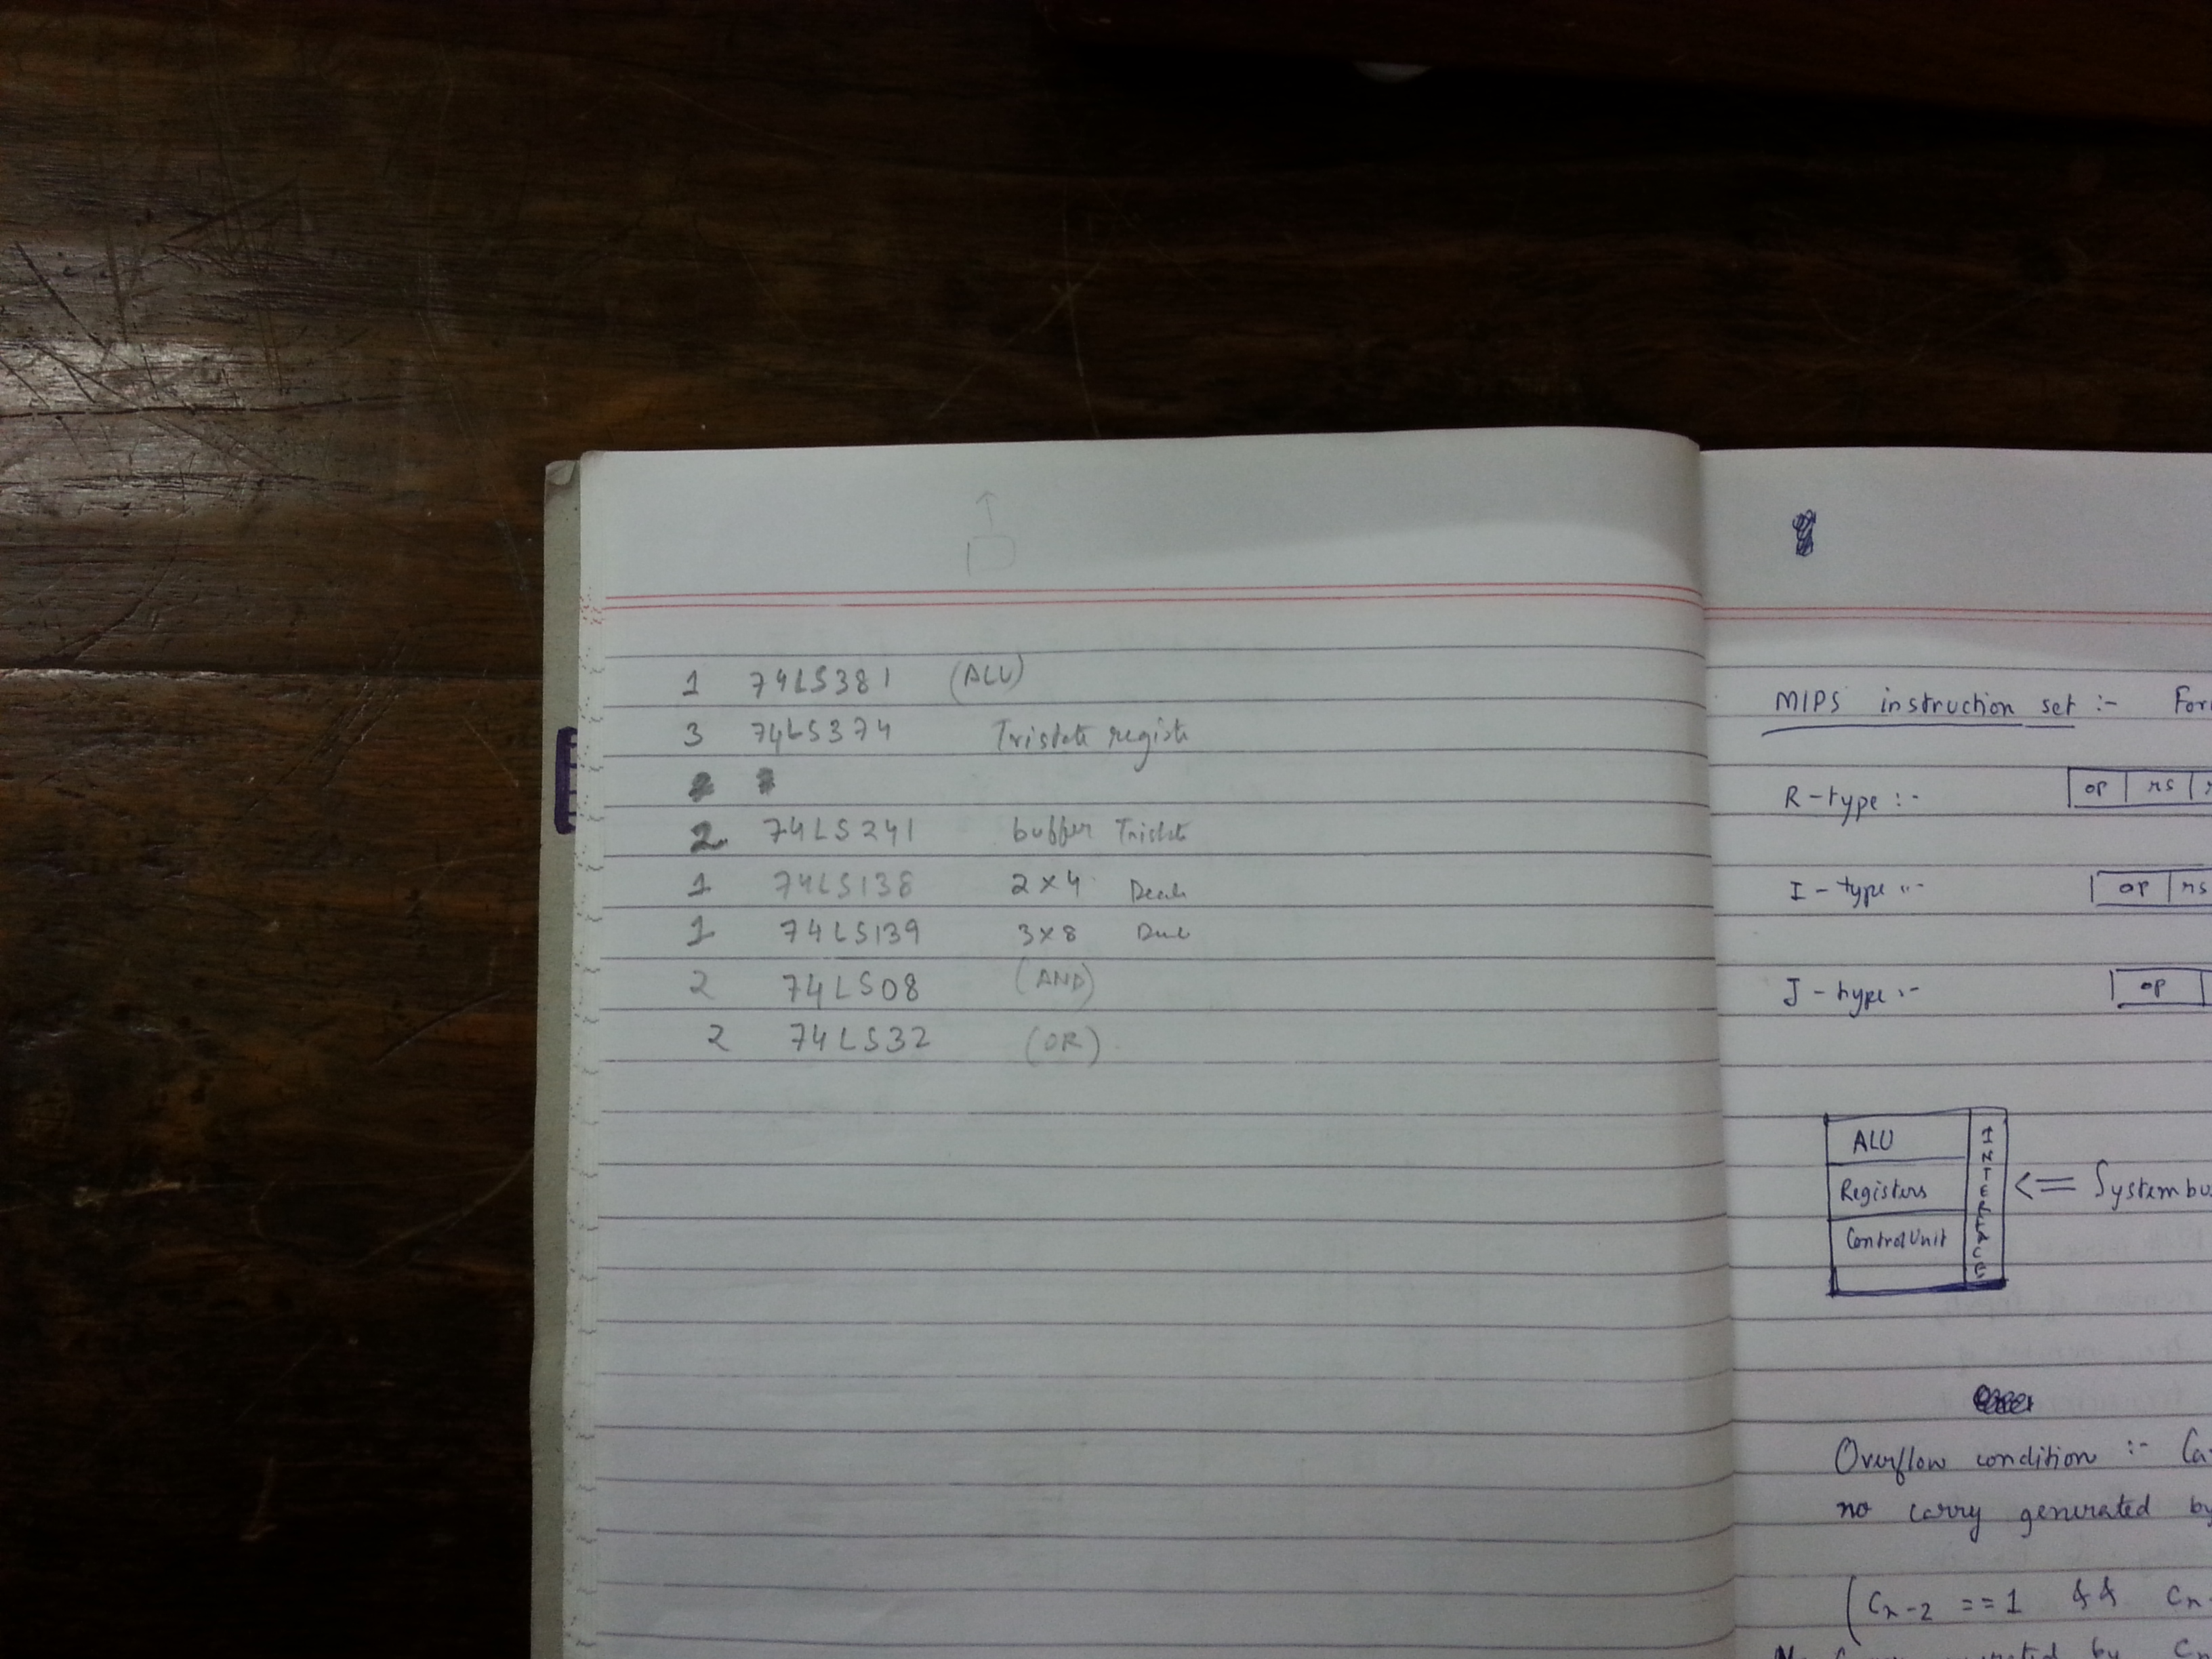 1 74LS381 (ALU)
3 74LS374 Tristate registe
2 74LS241 buffer Tristate
1 74LS138 2×4
1 74LS139 3×8
2 74LS08 (AND)
2 74LS32 (OR)
MIPS instruction set :- For
R-type :- op rs
I-type :- op rs
J-type :- op
ALU
Registers
Control Unit
INTERFACE
<= System bu
Overflow condition :- Ca
no carry generated by
(Cn-2 ==1 && Cn-
generated by Cn